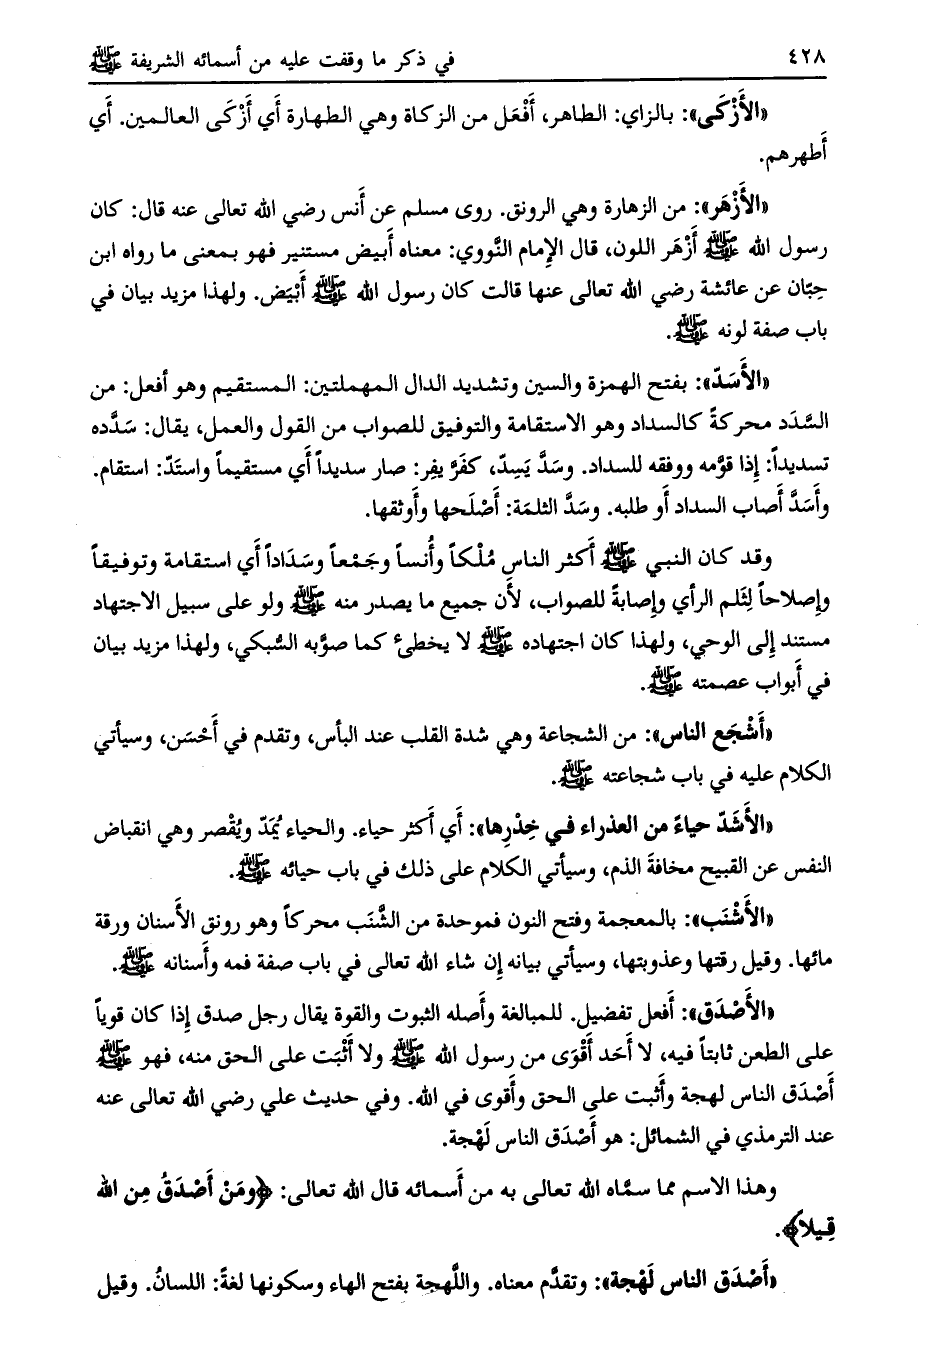 ٤٢٨ في ذكر ما وقفت عليه من أسمائه الشريفة ﷺ
«الأَزْكَى»: بالزاي: الطاهر، أَفْعَل من الزكاة وهي الطهارة أي أَزْكَى العالمين. أي
أَطهرهم.
«الأَزْهَر»: من الزهارة وهي الرونق. روى مسلم عن أَنس رضي الله تعالى عنه قال: كان
رسول الله ﷺ أَزْهَر اللون، قال الإِمام النَّووي: معناه أَبيض مستنير فهو بمعنى ما رواه ابن
حِبّان عن عائشة رضي الله تعالى عنها قالت كان رسول الله ﷺ أَبْيَض. ولهذا مزيد بيان في
باب صفة لونه ﷺ.
«الأَسَدّ»: بفتح الهمزة والسين وتشديد الدال المهملتين: المستقيم وهو أفعل: من
السَّدَد محركةً كالسداد وهو الاستقامة والتوفيق للصواب من القول والعمل، يقال: سَدَّده
تسديداً: إِذا قوَّمه ووفقه للسداد. وسَدَّ يَسِدّ، كفَرَّ يفِر: صار سديداً أَي مستقيماً واستَدّ: استقام.
وأَسَدَّ أَصاب السداد أَو طلبه. وسَدَّ الثلمَة: أَصْلَحها وأَوثقها.
وقد كان النبي ﷺ أَكثر الناس مُلْكاً وأُنساً وجَمْعاً وسَدَاداً أَي استقامة وتوفيقاً
وإِصلاحاً لِثَلم الرأي وإِصابةً للصواب، لأَن جميع ما يصدر منه ﷺ ولو على سبيل الاجتهاد
مستند إِلى الوحي، ولهذا كان اجتهاده ﷺ لا يخطىء كما صوَّبه السُّبكي، ولهذا مزيد بيان
في أَبواب عصمته ﷺ.
«أَشْجَع الناس»: من الشجاعة وهي شدة القلب عند البأس، وتقدم في أَحْسَن، وسيأتي
الكلام عليه في باب شجاعته ﷺ.
«الأَشَدّ حياءً من العذراء في خِدْرِها»: أَي أَكثر حياء. والحياء يُمَدّ ويُقْصر وهي انقباض
النفس عن القبيح مخافةَ الذم، وسيأتي الكلام على ذلك في باب حيائه ﷺ.
«الأَشْنَب»: بالمعجمة وفتح النون فموحدة من الشَّنَب محركاً وهو رونق الأَسنان ورقة
مائها. وقيل رقتها وعذوبتها، وسيأتي بيانه إِن شاء الله تعالى في باب صفة فمه وأَسنانه ﷺ.
«الأَصْدَق»: أَفعل تفضيل. للمبالغة وأَصله الثبوت والقوة يقال رجل صدق إِذا كان قوياً
على الطعن ثابتاً فيه، لا أَحَد أَقْوَى من رسول الله ﷺ ولا أَثْبَت على الحق منه، فهو ﷺ
أَصْدَق الناس لهجة وأَثبت على الحق وأَقوى في الله. وفي حديث علي رضي الله تعالى عنه
عند الترمذي في الشمائل: هو أَصْدَق الناس لَهْجة.
وهذا الاسم مما سمَّاه الله تعالى به من أَسمائه قال الله تعالى: ﴿ومَنْ أَصْدَقُ مِن الله
قِيلا﴾.
«أَصْدَق الناس لَهْجة»: وتقدَّم معناه. واللَّهجة بفتح الهاء وسكونها لغةً: اللسانُ. وقيل